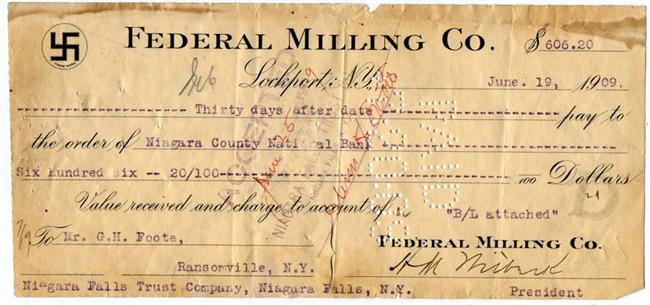 FEDERAL MILLING CO. $606.20
Lockport, N.Y. June. 19, 1909.
Thirty days after date pay to
the order of Niagara County National Bank
Six Hundred Six -- 20/100 100 Dollars
Value received and charge to account of "B/L attached"
7/9 To Mr. G.H. Foote, FEDERAL MILLING CO.
Ransomville, N.Y.
Niagara Falls Trust Company, Niagara Falls, N.Y. President
ACCEPTED